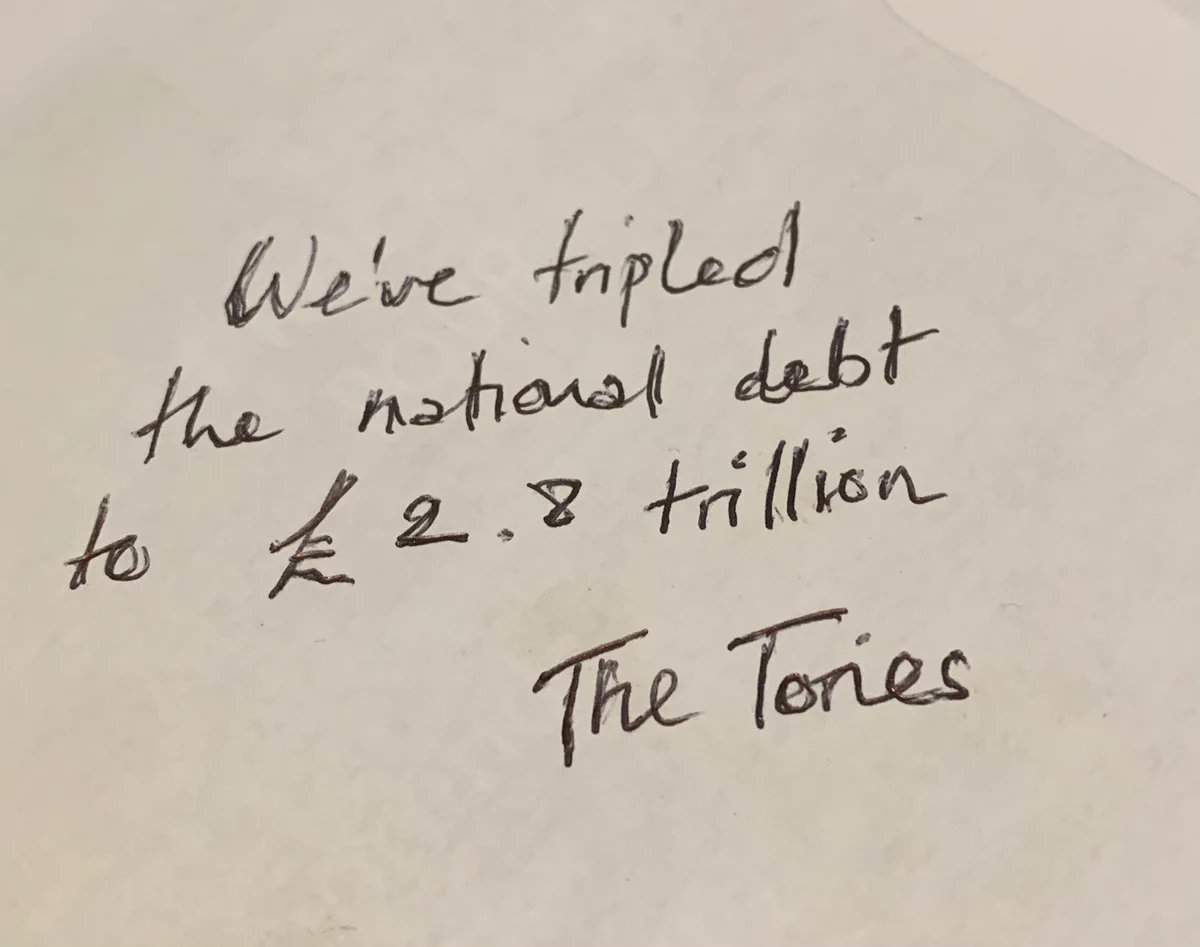 We've tripled
the national debt
to £ 2.8 trillion
The Tories